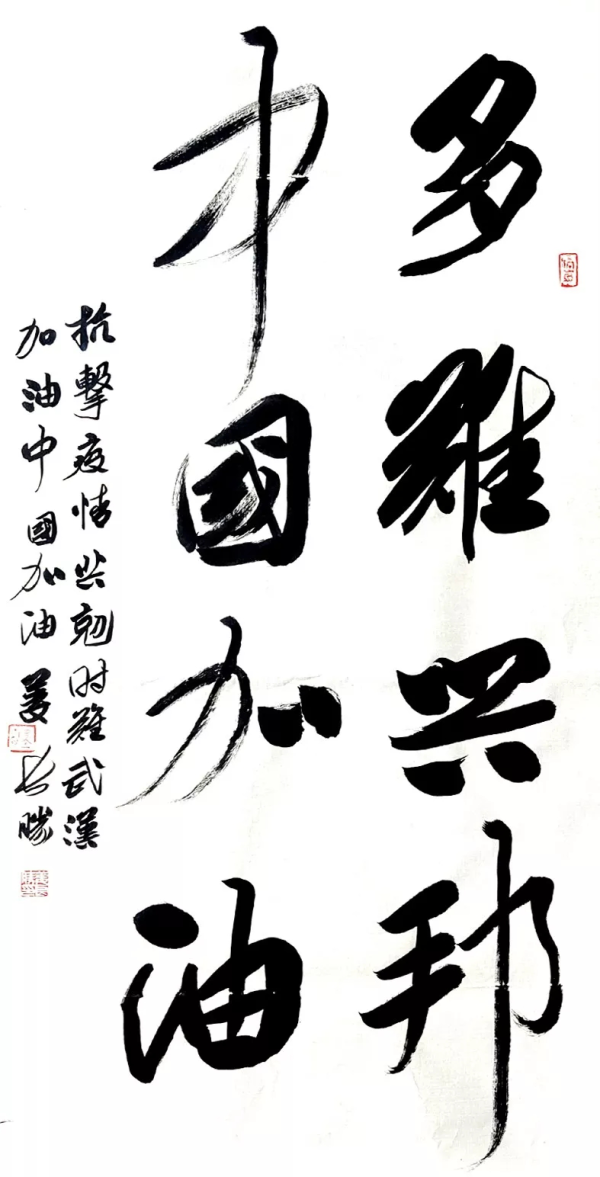 多難兴邦
中國加油
抗擊疫情共剋时難武漢
加油中國加油 姜长勝